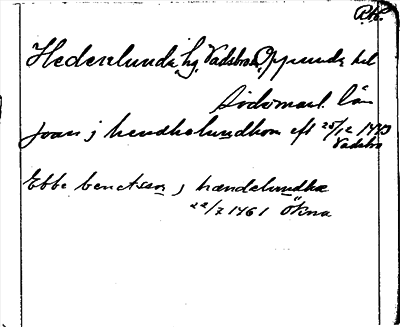 R.K.
Hederslunda hg. Vadsbro, Oppunda hd
Södermanl. län
joan j hendhalundhom eft 25/12 1443
Vadsbro
Ebbe benctsson j hændelundha
22/7 1461 Ökna